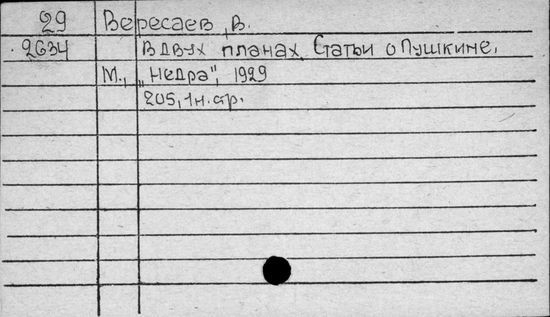 29 Вересаев, В.
2634 В двух планах. Статьи о Пушкине.
М., "Недра", 1929
205, 1 н. стр.